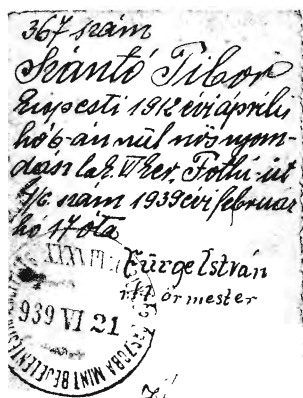 367 szám
Szántó Tibor
1912 évi április
hó 6-án szül nős nyom-
dász lak. VI ker. Fothi-út
4/c. szám 1939 évi február
hó 17 óta
Fürge István
őrmester
939 VI 21
SZOBA MINT BEJELENTÉSI